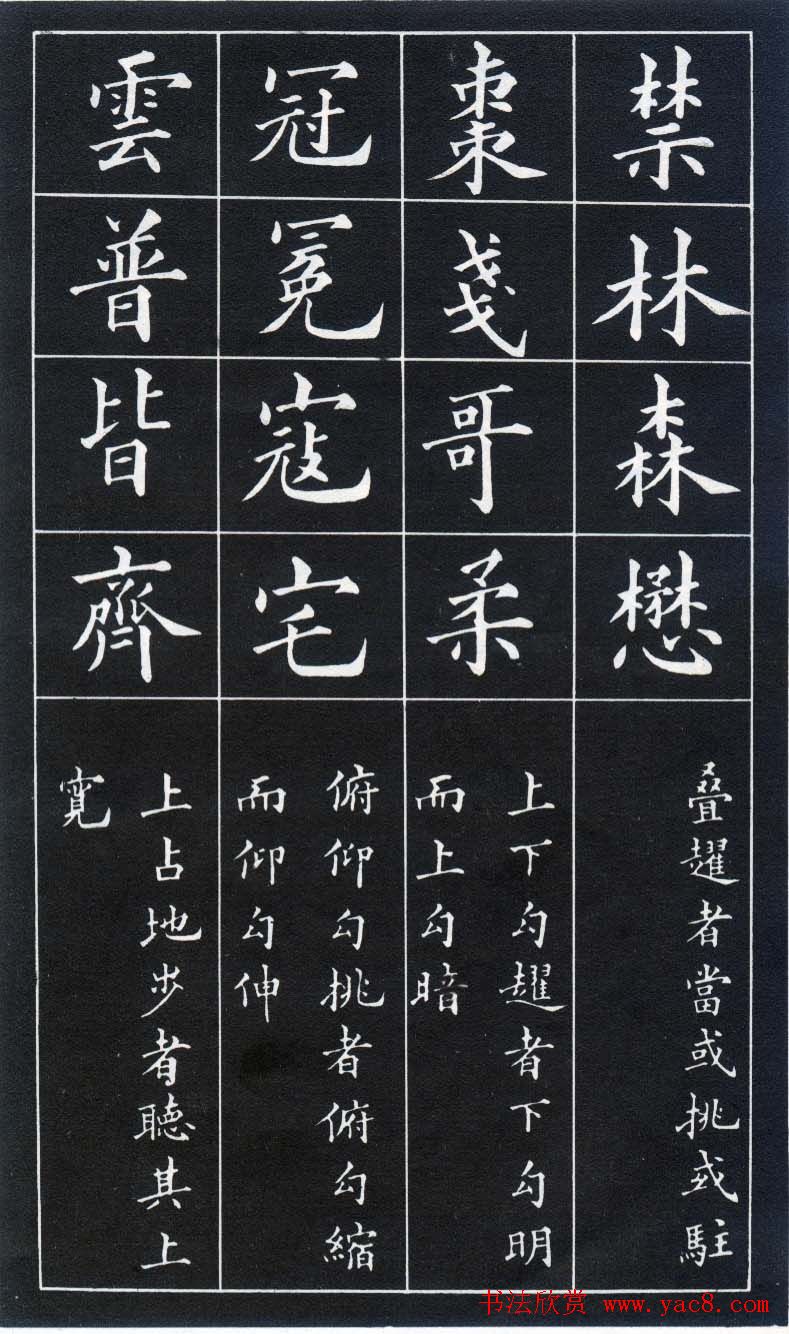 禁林森懋
叠趯者當或挑或駐
棗戔哥柔
上下勾趯者下勾明
而上勾暗
冠冕寇宅
俯仰勾挑者俯勾縮
而仰勾伸
雲普皆齊
上占地步者聽其上
寬
书法欣赏 www.yac8.com